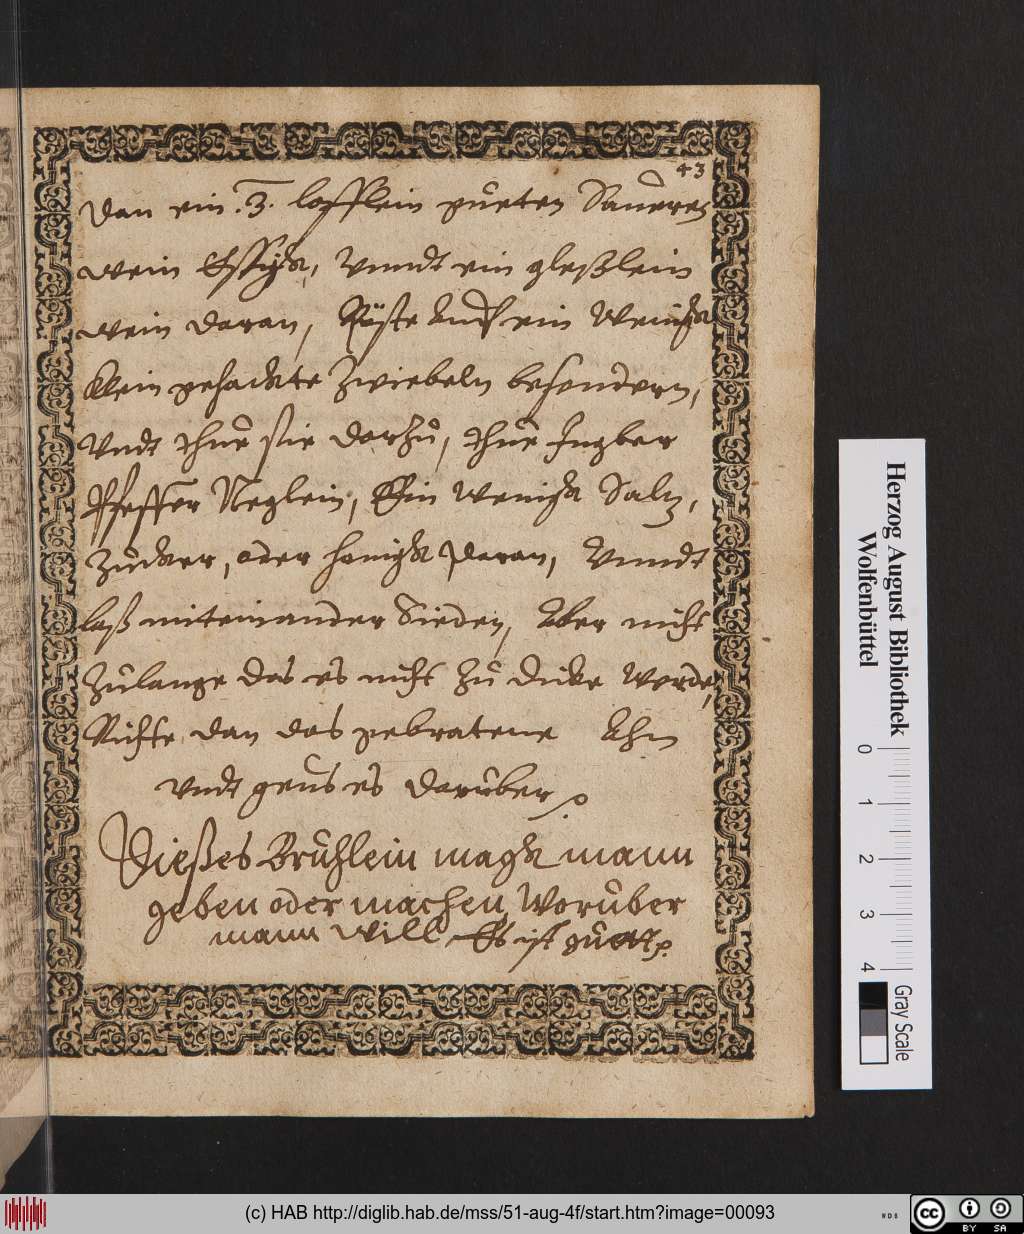 43
dan ein .3. loffllein gueten Saueren
wein Essigk, Vnndt ein gleßlein
wein daran, Röste auch ein Wenigk
klein gehackte Zwiebeln besondern,
Vndt thue sie darzu, thue Ingber
Pfeffer Neglein, Ein wenigk Saltz,
Zucker, oder honigk daran, Vnndt
laß miteinander Sieden, Aber nicht
Zulange das es nicht zu dicke Werde,
Richte dan das gebratene Ahn
Vndt geus es darüber
Dießes Brühlein magk mann
geben oder machen Worüber
mann will Es ist guett
Herzog August Bibliothek
Wolfenbüttel
0 1 2 3 4
Gray Scale
(c) HAB http://diglib.hab.de/mss/51-aug-4f/start.htm?image=00093
WDB
cc
BY SA